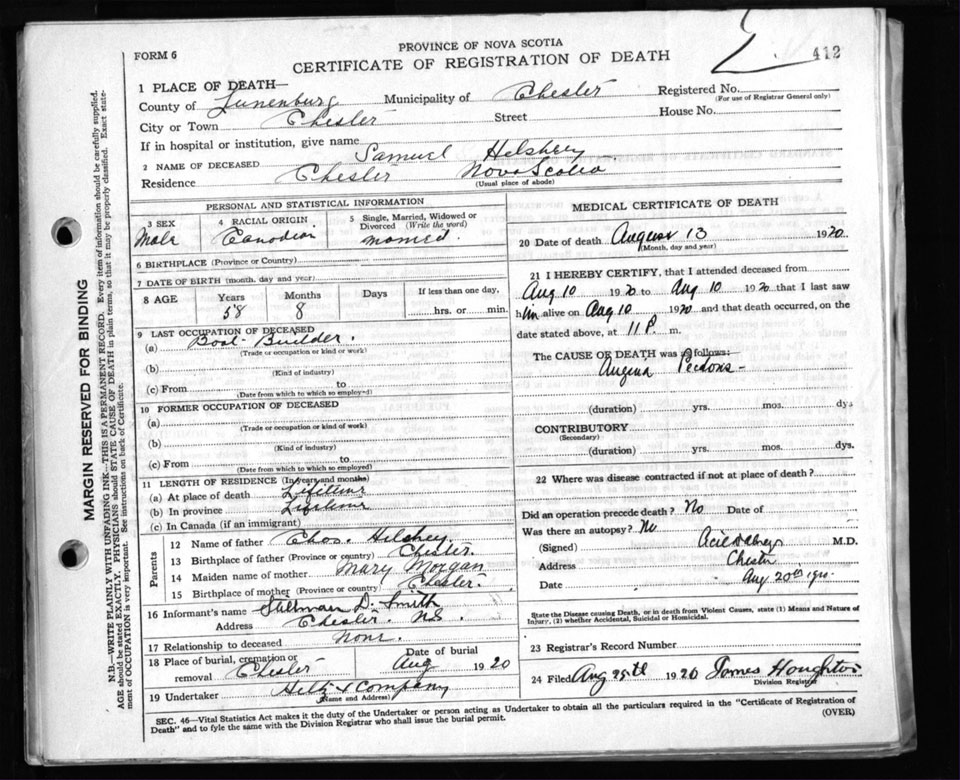 FORM 6
PROVINCE OF NOVA SCOTIA
CERTIFICATE OF REGISTRATION OF DEATH
412
1 PLACE OF DEATH—
County of Lunenburg Municipality of Chester Registered No.
(For use of Registrar General only)
City or Town Chester Street House No.
If in hospital or institution, give name
2 NAME OF DECEASED Samuel
Residence Chester Nova Scotia
(Usual place of abode)
PERSONAL AND STATISTICAL INFORMATION
3 SEX Male
4 RACIAL ORIGIN Canadian
5 Single, Married, Widowed or Divorced (Write the word) married
6 BIRTHPLACE (Province or Country)
7 DATE OF BIRTH (month, day and year)
8 AGE Years Months Days If less than one day,
58 8 hrs. or min.
9 LAST OCCUPATION OF DECEASED
(a) Boat-Builder.
(Trade or occupation or kind or work)
(b)
(Kind of industry)
(c) From to
(Date from which to which so employed)
10 FORMER OCCUPATION OF DECEASED
(a)
(Trade or occupation or kind of work)
(b)
(Kind of industry)
(c) From to
(Date from which to which so employed)
11 LENGTH OF RESIDENCE (In years and months)
(a) At place of death Lifetime
(b) In province Lifetime
(c) In Canada (if an immigrant)
Parents
12 Name of father Chas.
13 Birthplace of father (Province or country) Chester.
14 Maiden name of mother Mary Morgan
15 Birthplace of mother (Province or country) Chester.
16 Informant's name Stillman D. Smith
Address Chester. N.S.
17 Relationship to deceased None.
18 Place of burial, cremation or removal Chester
Date of burial Aug 1920
19 Undertaker & Company
(Name and Address)
MEDICAL CERTIFICATE OF DEATH
20 Date of death August 13 1920
(Month, day and year)
21 I HEREBY CERTIFY, that I attended deceased from
Aug 10 1920 to Aug 10 1920 that I last saw
him alive on Aug 10 1920 and that death occurred, on the
date stated above, at 11 P. m.
The CAUSE OF DEATH was as follows:
Angina
(duration) yrs. mos. dys
CONTRIBUTORY
(Secondary)
(duration) yrs. mos. dys.
22 Where was disease contracted if not at place of death?
Did an operation precede death? No Date of
Was there an autopsy? No
(Signed) M.D.
Address Chester
Date Aug 20th
State the Disease causing Death, or in death from Violent Causes, state (1) Means and Nature of
Injury, (2) whether Accidental, Suicidal or Homicidal.
23 Registrar's Record Number
24 Filed Aug 1920 James Houghton
Division Registrar
SEC. 46—Vital Statistics Act makes it the duty of the Undertaker or person acting as Undertaker to obtain all the particulars required in the "Certificate of Registration of
Death" and to fyle the same with the Division Registrar who shall issue the burial permit.
(OVER)
MARGIN RESERVED FOR BINDING
N.B.—WRITE PLAINLY WITH UNFADING INK—THIS IS A PERMANENT RECORD. Every item of information should be carefully supplied.
AGE should be stated EXACTLY. PHYSICIANS should STATE CAUSE OF DEATH in plain terms, so that it may be properly classified. Exact state-
ment of OCCUPATION is very important. See instructions on back of Certificate.